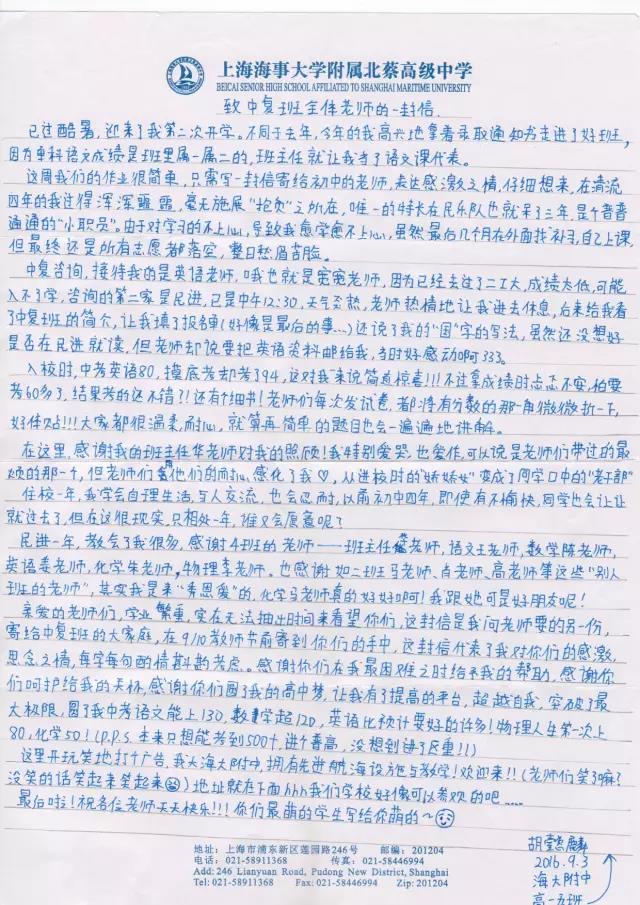 上海海事大学附属北蔡高级中学
BEICAI SENIOR HIGH SCHOOL AFFILIATED TO SHANGHAI MARITIME UNIVERSITY
致中复班主任老师的一封信
已过酷暑，迎来了我第二次开学。不同于去年，今年的我高兴地拿着录取通知书走进了好班，
因为单科语文成绩是班里属一属二的，班主任就让我当了语文课代表。
这周我们的作业很简单，只需写一封信寄给初中的老师，表达感激之情，仔细想来，在清流
四年的我过得浑浑噩噩，毫无施展"抱负"之所在，唯一的特长在民乐队也就呆了三年，是个普普
通通的"小职员"。由于对学习的不上心，导致我愈学愈不上心，虽然最后几个月在外面找补习，自己上课，
但最终还是所有志愿都落空，整日愁眉苦脸。
中复咨询，接待我的是英语老师，哦也就是宽宽老师，因为已经去过了二工大，成绩太低，可能
入不了学，咨询的第二家是民进，已是中午12:30，天气炎热，老师热情地让我进去休息，后来给我看
了中复班的简介，让我填了报名单(好像是最后的事...)还说了我的"国"字的写法，虽然还没想好
是否在民进就读，但老师却说要把英语资料邮给我，当时好感动啊333。
入校时，中考英语80，摸底考却考了94，这对我来说简直惊喜!!!不过拿成绩时忐忑不安，怕要
考60多了，结果考的还不错??还有个细节!老师们每次发试卷，都将有分数的那一角微微折一下，
好体贴!!!大家都很温柔耐心，就算再简单的题目也会一遍遍地讲解。
在这里，感谢我的班主任华老师对我的照顾!我特别爱哭，也爱作，可以说是老师们带过的最
烦的那一个，但老师们用他们的耐心感化了我♡，从进校时的"娇娇女"变成了同学口中的"老干部"
住校一年，我学会自理生活，与人交流，也会忍耐，以前初中四年，即使有不愉快，同学也会让让
就过去了，但在这很现实，只相处一年，谁又会愿意呢?
民进一年，教会了我很多，感谢4班班的老师——班主任华老师，语文王老师，数学陈老师，
英语娄老师，化学朱老师，物理李老师。也感谢如二班马老师、卢老师、高老师等这些"别人
班的老师"，其实我是来"秀恩爱"的，化学马老师真的好好啊!我跟她可是好朋友呢!
亲爱的老师们，学业繁重，实在无法抽出时间来看望你们，这封信是我问老师要的另一份，
寄给中复班的大家庭，在9/10教师节前寄到你们的手中，这封信代表了我对你们的感激，
思念之情，每字每句酌情斟酌考虑。感谢你们在我最困难之时给予我的帮助，感谢你
们呵护给我的关怀，感谢你们圆了我的高中梦，让我有了提高的平台，超越自我，突破了最
大极限，圆了我中考语文能上130，数学超120，英语比预计要好的许多!物理人生第一次上
80，化学50!(P.P.S.本来只想能考到500+，进个普高，没想到进了区重!!)
这里开玩笑地打个广告，我大海大附中，拥有先进航海设施与教学!欢迎来!!(老师们笑了嘛?
没笑的话笑起来笑起来)地址就在下面hhh我们学校好像可以参观的吧……
最后啦!祝各位老师天天快乐!!!你们最萌的学生写给你萌的~
胡 麟
2016.9.3
海大附中
高一五班
地址：上海市浦东新区莲园路246号 邮编：201204
电话：021-58911368 传真：021-58446994
Add: 246 Lianyuan Road, Pudong New District, Shanghai
Tel: 021-58911368 Fax: 021-58446994 Zip: 201204